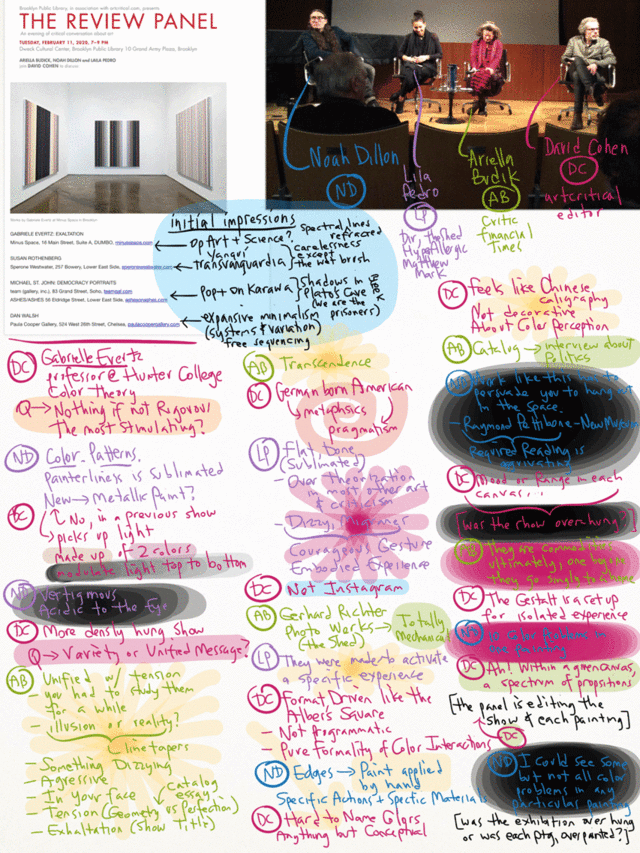 Brooklyn Public Library, in association with artcritical.com, presents
THE REVIEW PANEL
An evening of critical conversation about art
TUESDAY, FEBRUARY 11, 2020, 7–9 PM
Dweck Cultural Center, Brooklyn Public Library 10 Grand Army Plaza, Brooklyn
ARIELLA BUDICK, NOAH DILLON and LAILA PEDRO
join DAVID COHEN to discuss
Works by Gabriele Evertz at Minus Space in Brooklyn
GABRIELE EVERTZ: EXALTATION
Minus Space, 16 Main Street, Suite A, DUMBO, minusspace.com
SUSAN ROTHENBERG
Sperone Westwater, 257 Bowery, Lower East Side, speronewestwater.com
MICHAEL ST. JOHN: DEMOCRACY PORTRAITS
team (gallery, inc.), 83 Grand Street, Soho, teamgal.com
ASHES/ASHES 56 Eldridge Street, Lower East Side, ashesonashes.com
DAN WALSH
Paula Cooper Gallery, 524 West 26th Street, Chelsea, paulacoopergallery.com
Noah Dillon
ND
Lila
Pedro
LP
Hyperallergic
Ariella
Budik
AB
Critic
Financial
Times
David Cohen
DC
artcritical
editor
initial impressions
Op Art + Science?
Spectral lines
refracted
Transvanguardia
carelessness
except
the left brush
Pop + on Karawa
Shadows in
Plato's Cave
(we are the
prisoners)
expansive minimalism
(systems & variation)
free sequencing
DC Gabrielle Evertz
professor @ Hunter College
Color Theory
Q → Nothing if not Rigorous
The most Stimulating?
ND Color Patterns.
Painterliness is Sublimated
New → Metallic Paint?
DC
No, in a previous show
→ picks up light
made up of 2 colors
modulate light top to bottom
ND Vertigmous
Acidic to the Eye
DC More densly hung show
Q → Variety or Unified Message?
AB Unified w/ tension
- you had to study them
for a while
- illusion or reality?
line tapers
- Something Dizzying
- Agressive
- In your face
- Tension (Geometry vs Perfection)
catalog
essay
- Exhaltation (Show Title)
AB Transcendence
DC German born American
metaphsics
pragmatism
LP Flat, tone
(Sublimated)
- Over theorization
in most other art
of
- Dizzy,
- Courageous Gesture
Embodied Experience
DC Not Instagram
AB Gerhard Richter
Photo Works →
(the Shed)
Totally
Mechanical
LP They were made to activate
a specific experience
DC Format Driven like the
Albers Square
- Not Programmatic
- Pure Formality of Color Interactions
ND Edges → Paint applied
by hand
Specific Actions + Spectic Materials
DC Hard to Name Colors
Anything but Conceptual
DC feels like Chinese
caligraphy
Not decorative
About Color Perception
AB Catalog → interview about
Politics
work like this
persuade you to hang out
in the space.
- Raymond Pettibone - New Museum
Required Reading is
DC Mood or Range in each
canvas...
[was the show over hung?]
they are
ultimately, one buyer
DC The Gestalt is a set up
for isolated experience
DC Ah! Within a given canvas,
a spectrum of propositions
[the panel is editing the
show & each painting]
DC
ND I could see some
but not all color
problems in any
particular painting
[was the exhibition over hung
or was each ptg, overpainted?]